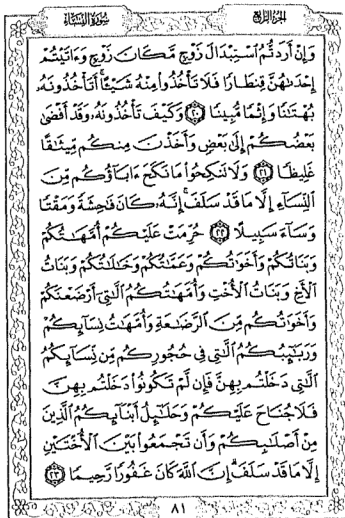 الجزء الرابع
سورة النساء
وَإِنْ أَرَدتُّمُ ٱسْتِبْدَالَ زَوْجٍ مَّكَانَ زَوْجٍ وَءَاتَيْتُمْ
إِحْدَىٰهُنَّ قِنطَارًا فَلَا تَأْخُذُوا۟ مِنْهُ شَيْـًٔا أَتَأْخُذُونَهُۥ
بُهْتَـٰنًا وَإِثْمًا مُّبِينًا ٢٠ وَكَيْفَ تَأْخُذُونَهُۥ وَقَدْ أَفْضَىٰ
بَعْضُكُمْ إِلَىٰ بَعْضٍ وَأَخَذْنَ مِنكُم مِّيثَـٰقًا
غَلِيظًا ٢١ وَلَا تَنكِحُوا۟ مَا نَكَحَ ءَابَآؤُكُم مِّنَ
ٱلنِّسَآءِ إِلَّا مَا قَدْ سَلَفَ إِنَّهُۥ كَانَ فَـٰحِشَةً وَمَقْتًا
وَسَآءَ سَبِيلًا ٢٢ حُرِّمَتْ عَلَيْكُمْ أُمَّهَـٰتُكُمْ
وَبَنَاتُكُمْ وَأَخَوَٰتُكُمْ وَعَمَّـٰتُكُمْ وَخَـٰلَـٰتُكُمْ وَبَنَاتُ
ٱلْأَخِ وَبَنَاتُ ٱلْأُخْتِ وَأُمَّهَـٰتُكُمُ ٱلَّـٰتِىٓ أَرْضَعْنَكُمْ
وَأَخَوَٰتُكُم مِّنَ ٱلرَّضَـٰعَةِ وَأُمَّهَـٰتُ نِسَآئِكُمْ
وَرَبَـٰٓئِبُكُمُ ٱلَّـٰتِى فِى حُجُورِكُم مِّن نِّسَآئِكُمُ
ٱلَّـٰتِى دَخَلْتُم بِهِنَّ فَإِن لَّمْ تَكُونُوا۟ دَخَلْتُم بِهِنَّ
فَلَا جُنَاحَ عَلَيْكُمْ وَحَلَـٰٓئِلُ أَبْنَآئِكُمُ ٱلَّذِينَ
مِنْ أَصْلَـٰبِكُمْ وَأَن تَجْمَعُوا۟ بَيْنَ ٱلْأُخْتَيْنِ
إِلَّا مَا قَدْ سَلَفَ إِنَّ ٱللَّهَ كَانَ غَفُورًا رَّحِيمًا ٢٣
٨١